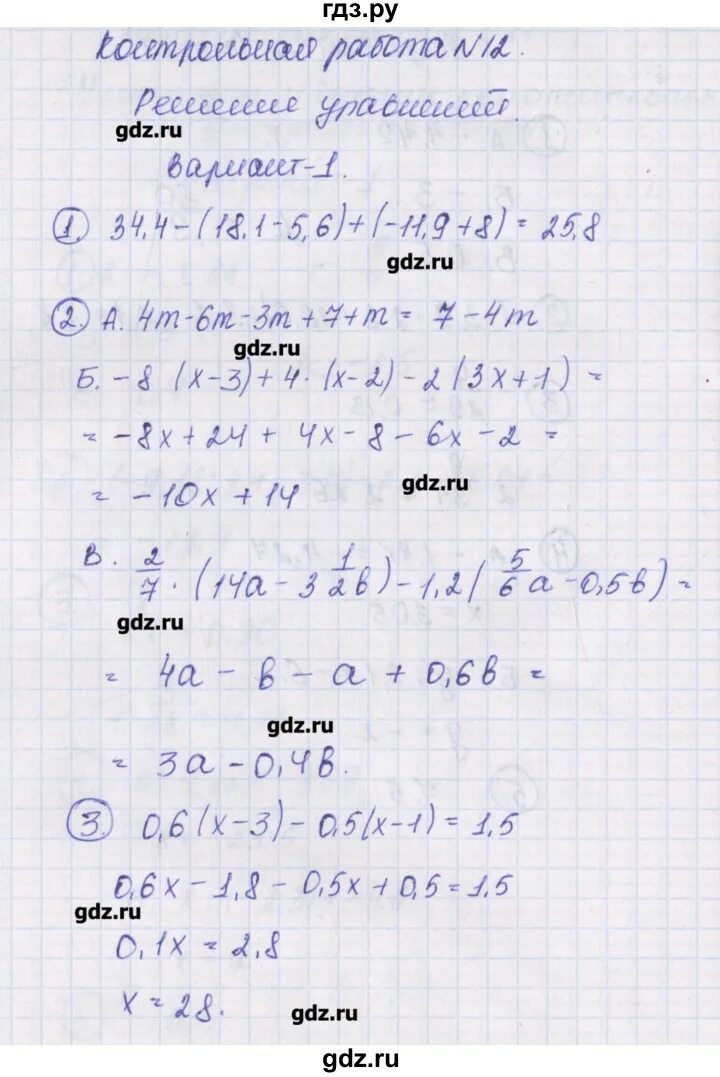 гдз.ру
Контрольная работа N12.
Решение уравнений.
gdz.ru
Вариант-1.
1. 34,4-(18,1-5,6)+(-11,9+8) = 25,8
gdz.ru
2. А. 4m-6m-3m+7+m = 7-4m
gdz.ru
Б. -8 (x-3)+4·(x-2)-2(3x+1) =
= -8x+24+4x-8-6x-2 =
= -10x+14
gdz.ru
В. 2/7·(14a-3 1/2в)-1,2(5/6a-0,5в) =
gdz.ru
= 4a-в-a+0,6в =
gdz.ru
= 3a-0,4в.
3. 0,6(x-3)-0,5(x-1) = 1,5
0,6x-1,8-0,5x+0,5=1,5
gdz.ru
0,1x = 2,8
x = 28.
gdz.ru
gdz.ru